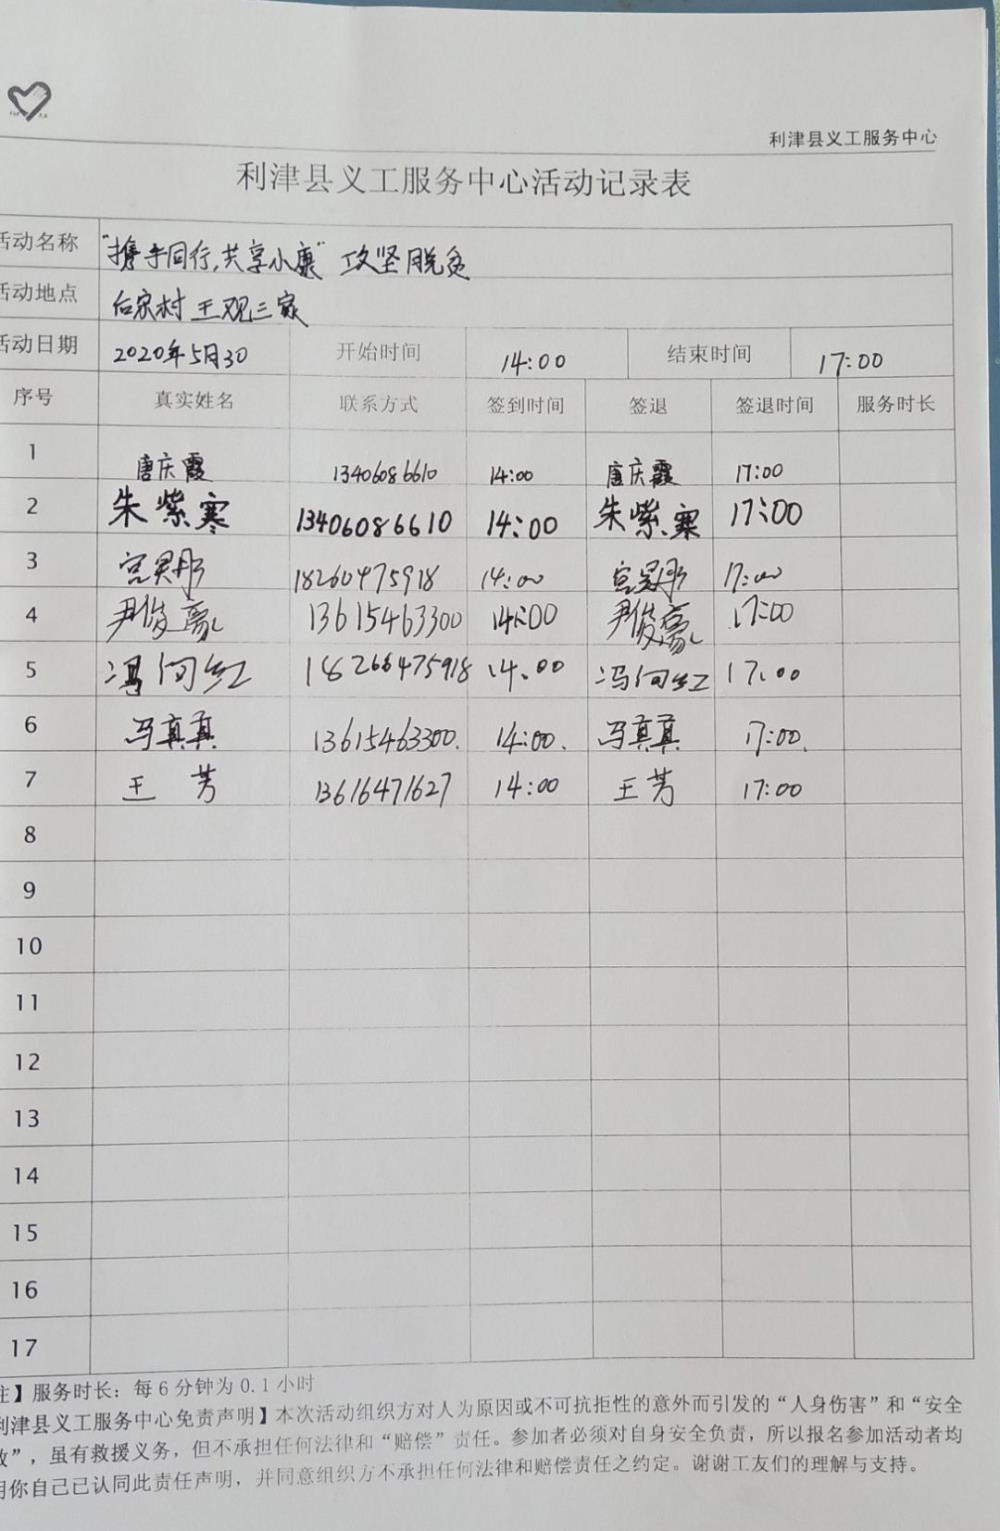 利津县义工服务中心
利津县义工服务中心活动记录表
活动名称 “携手同行,共享小康” 攻坚脱贫
活动地点 后宋村 王观三家
活动日期 2020年5月30 开始时间 14:00 结束时间 17:00
序号 真实姓名 联系方式 签到时间 签退 签退时间 服务时长
1 唐庆霞 13406086610 14:00 唐庆霞 17:00
2 朱紫寒 13406086610 14:00 朱紫寒 17:00
3 18260475918 14:00 17:00
4 尹俊豪 13615463300 14:00 尹俊豪 17:00
5 冯向红 18266475918 14.00 冯向红 17.00
6 冯真真 13615463300. 14:00. 冯真真 17:00.
7 王 芳 13616471627 14:00 王芳 17:00
8
9
10
11
12
13
14
15
16
17
注】服务时长：每6分钟为0.1小时
利津县义工服务中心免责声明】本次活动组织方对人为原因或不可抗拒性的意外而引发的“人身伤害”和“安全
故”，虽有救援义务，但不承担任何法律和“赔偿”责任。参加者必须对自身安全负责，所以报名参加活动者均
明你自己已认同此责任声明，并同意组织方不承担任何法律和赔偿责任之约定。谢谢工友们的理解与支持。